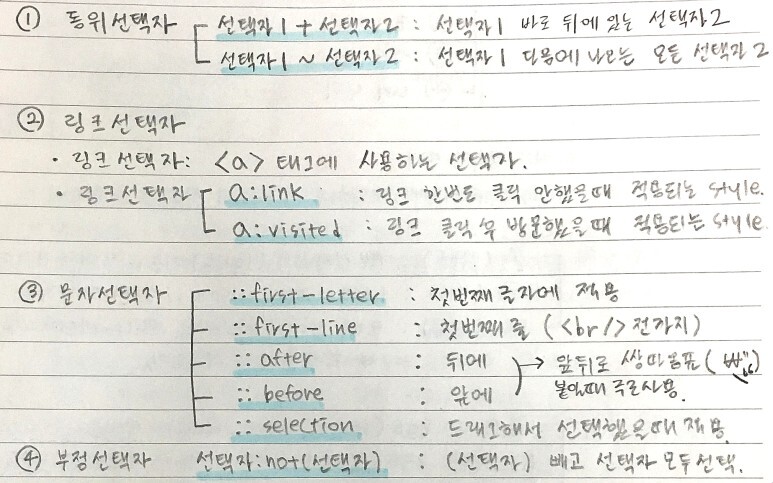 ① 동위선택자 선택자1 + 선택자2 : 선택자1 바로 뒤에 있는 선택자2
선택자1 ~ 선택자2 : 선택자1 다음에 나오는 모든 선택자2
② 링크선택자
· 링크선택자: <a> 태그에 사용하는 선택자.
· 링크선택자 a:link : 링크 한번도 클릭 안했을때 적용되는 style.
a:visited : 링크 클릭 후 방문했을때 적용되는 style.
③ 문자선택자 ::first-letter : 첫번째 글자에 적용
::first-line : 첫번째 줄 (<br/>전까지)
::after : 뒤에 → 앞뒤로 쌍따옴표( " " )
::before : 앞에 붙일때 주로사용.
::selection : 드래그해서 선택했을때 적용.
④ 부정선택자 선택자:not(선택자) : (선택자) 빼고 선택자 모두선택.